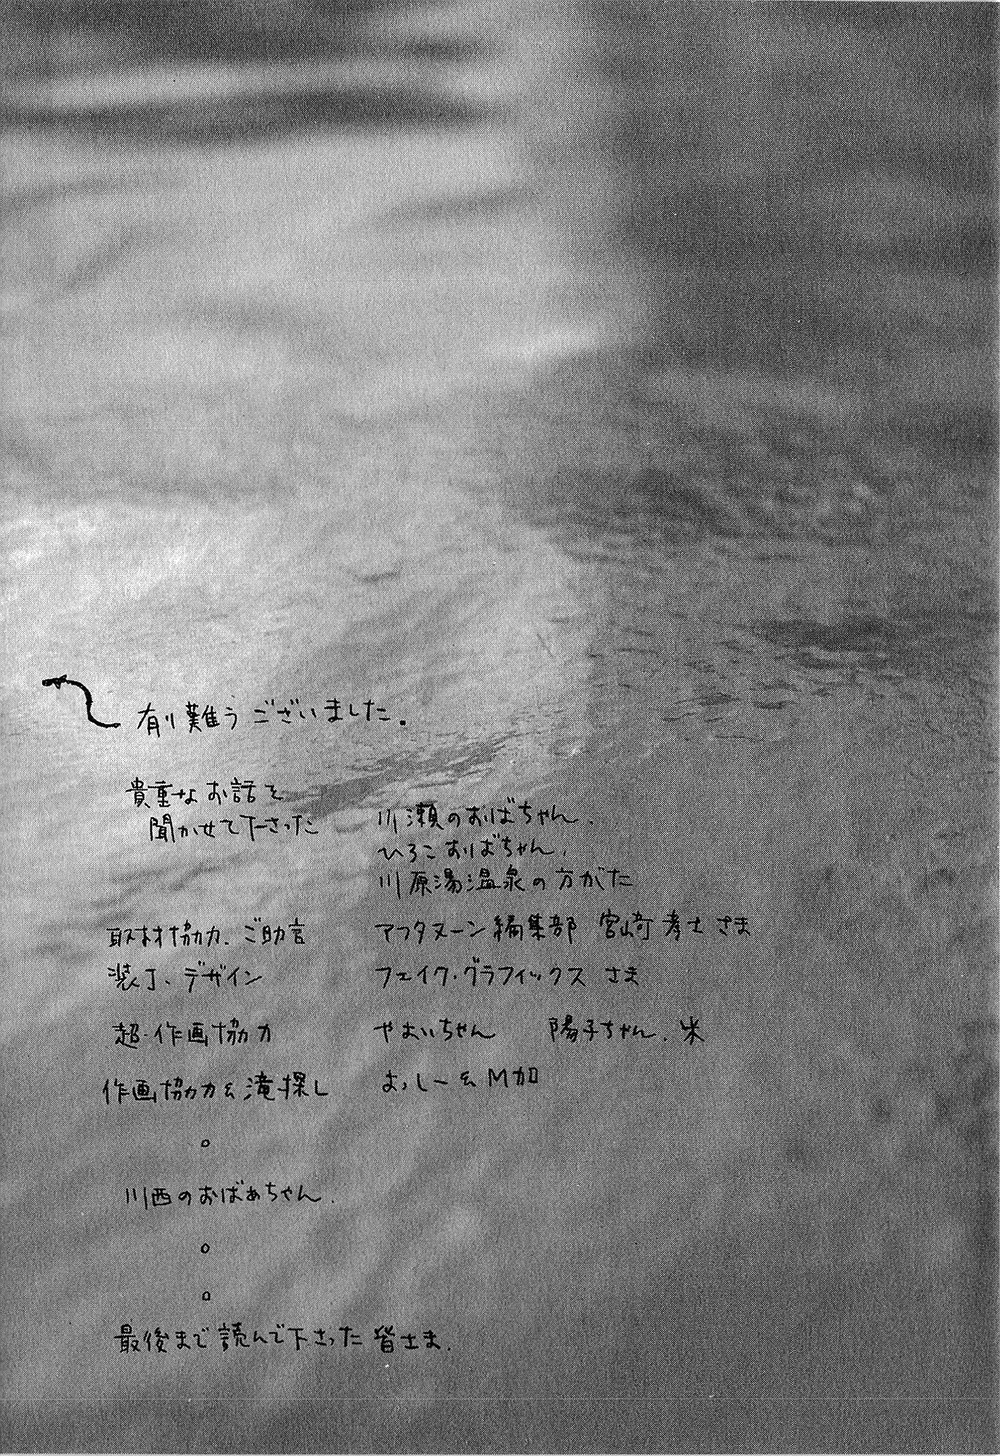 有り難うございました。
貴重なお話を
聞かせて下さった
川瀬のおばちゃん、
ひろこおばちゃん、
川原湯温泉の方がた
取材協力、ご助言 アフタヌーン編集部 宮崎孝士さま
装丁、デザイン フェイク・グラフィックス さま
超・作画協力 やよいちゃん 陽子ちゃん、米
作画協力&滝探し よっしー& M加
川西のおばあちゃん、
最後まで読んで下さった皆さま、